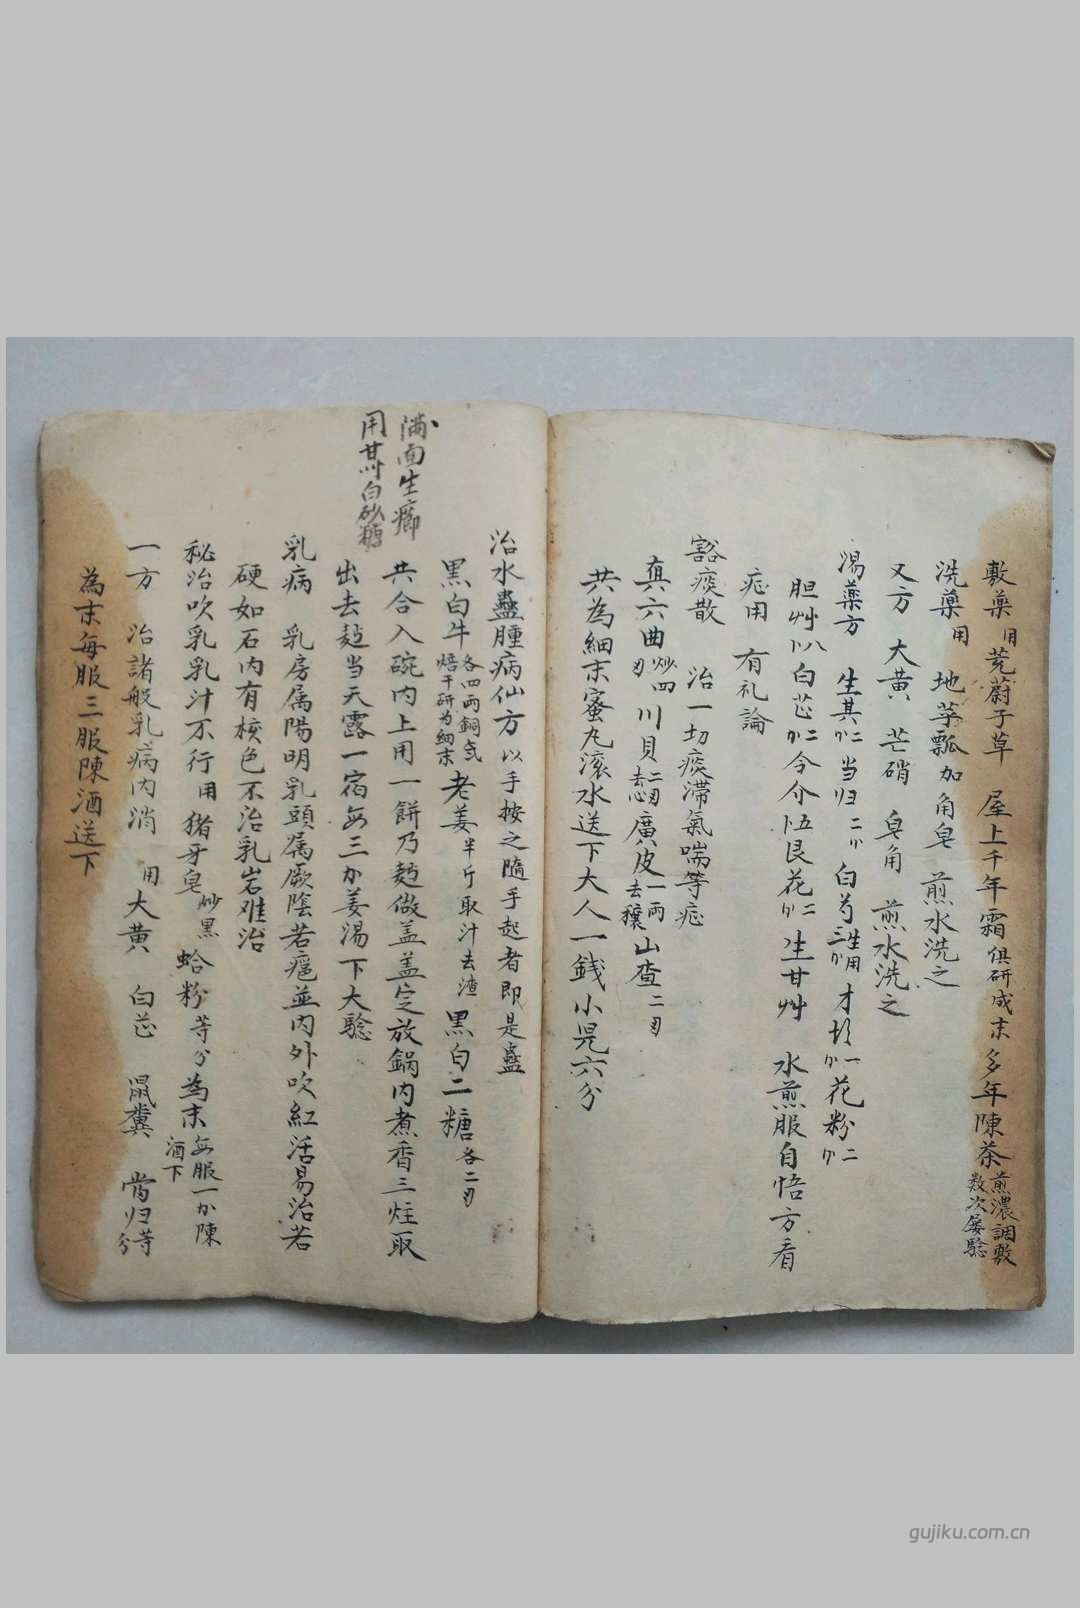 敷藥用茺蔚子草　屋上千年霜俱研咸末多年陳茶煎濃調敷数次屡驗
洗藥用　地茡瓢加角皂　煎水洗之
又方　大黄　芒硝　皂角　煎水洗之
湯藥方　生其二　当归二　白芍生用三　才一花粉二
胆艸八白芷二今介五艮花二生甘艸　水煎服自悟方看
症用　有礼論
豁痰散　治一切痰滞氣喘等症
真六曲炒四川貝二去心廣皮一両去穰山查二
共為細末蜜丸滚水送下大人一銭小児六分
治水蠱腫病仙方以手按之隨手起者即是蠱
黒白牛各四両銅瓦焙干研为細末老姜半斤取汁去渣黒白二糖各二
共合入碗内上用一餅乃麺做盖盖定放鍋内煮香三炷取
出去麺当天露一宿每三姜湯下大驗
乳病　乳房属陽明乳頭属厥陰若瘪並内外吹紅活易治若
硬如石内有核色不治乳岩难治
秘治吹乳乳汁不行用猪牙皂炒黒蛤粉等分為末每服一陳酒下
一方　治諸般乳病内消　用大黄　白芷　鼠糞　當归等分
為末每服三服陳酒送下
满面生癤
用甘白砂糖
gujiku.com.cn